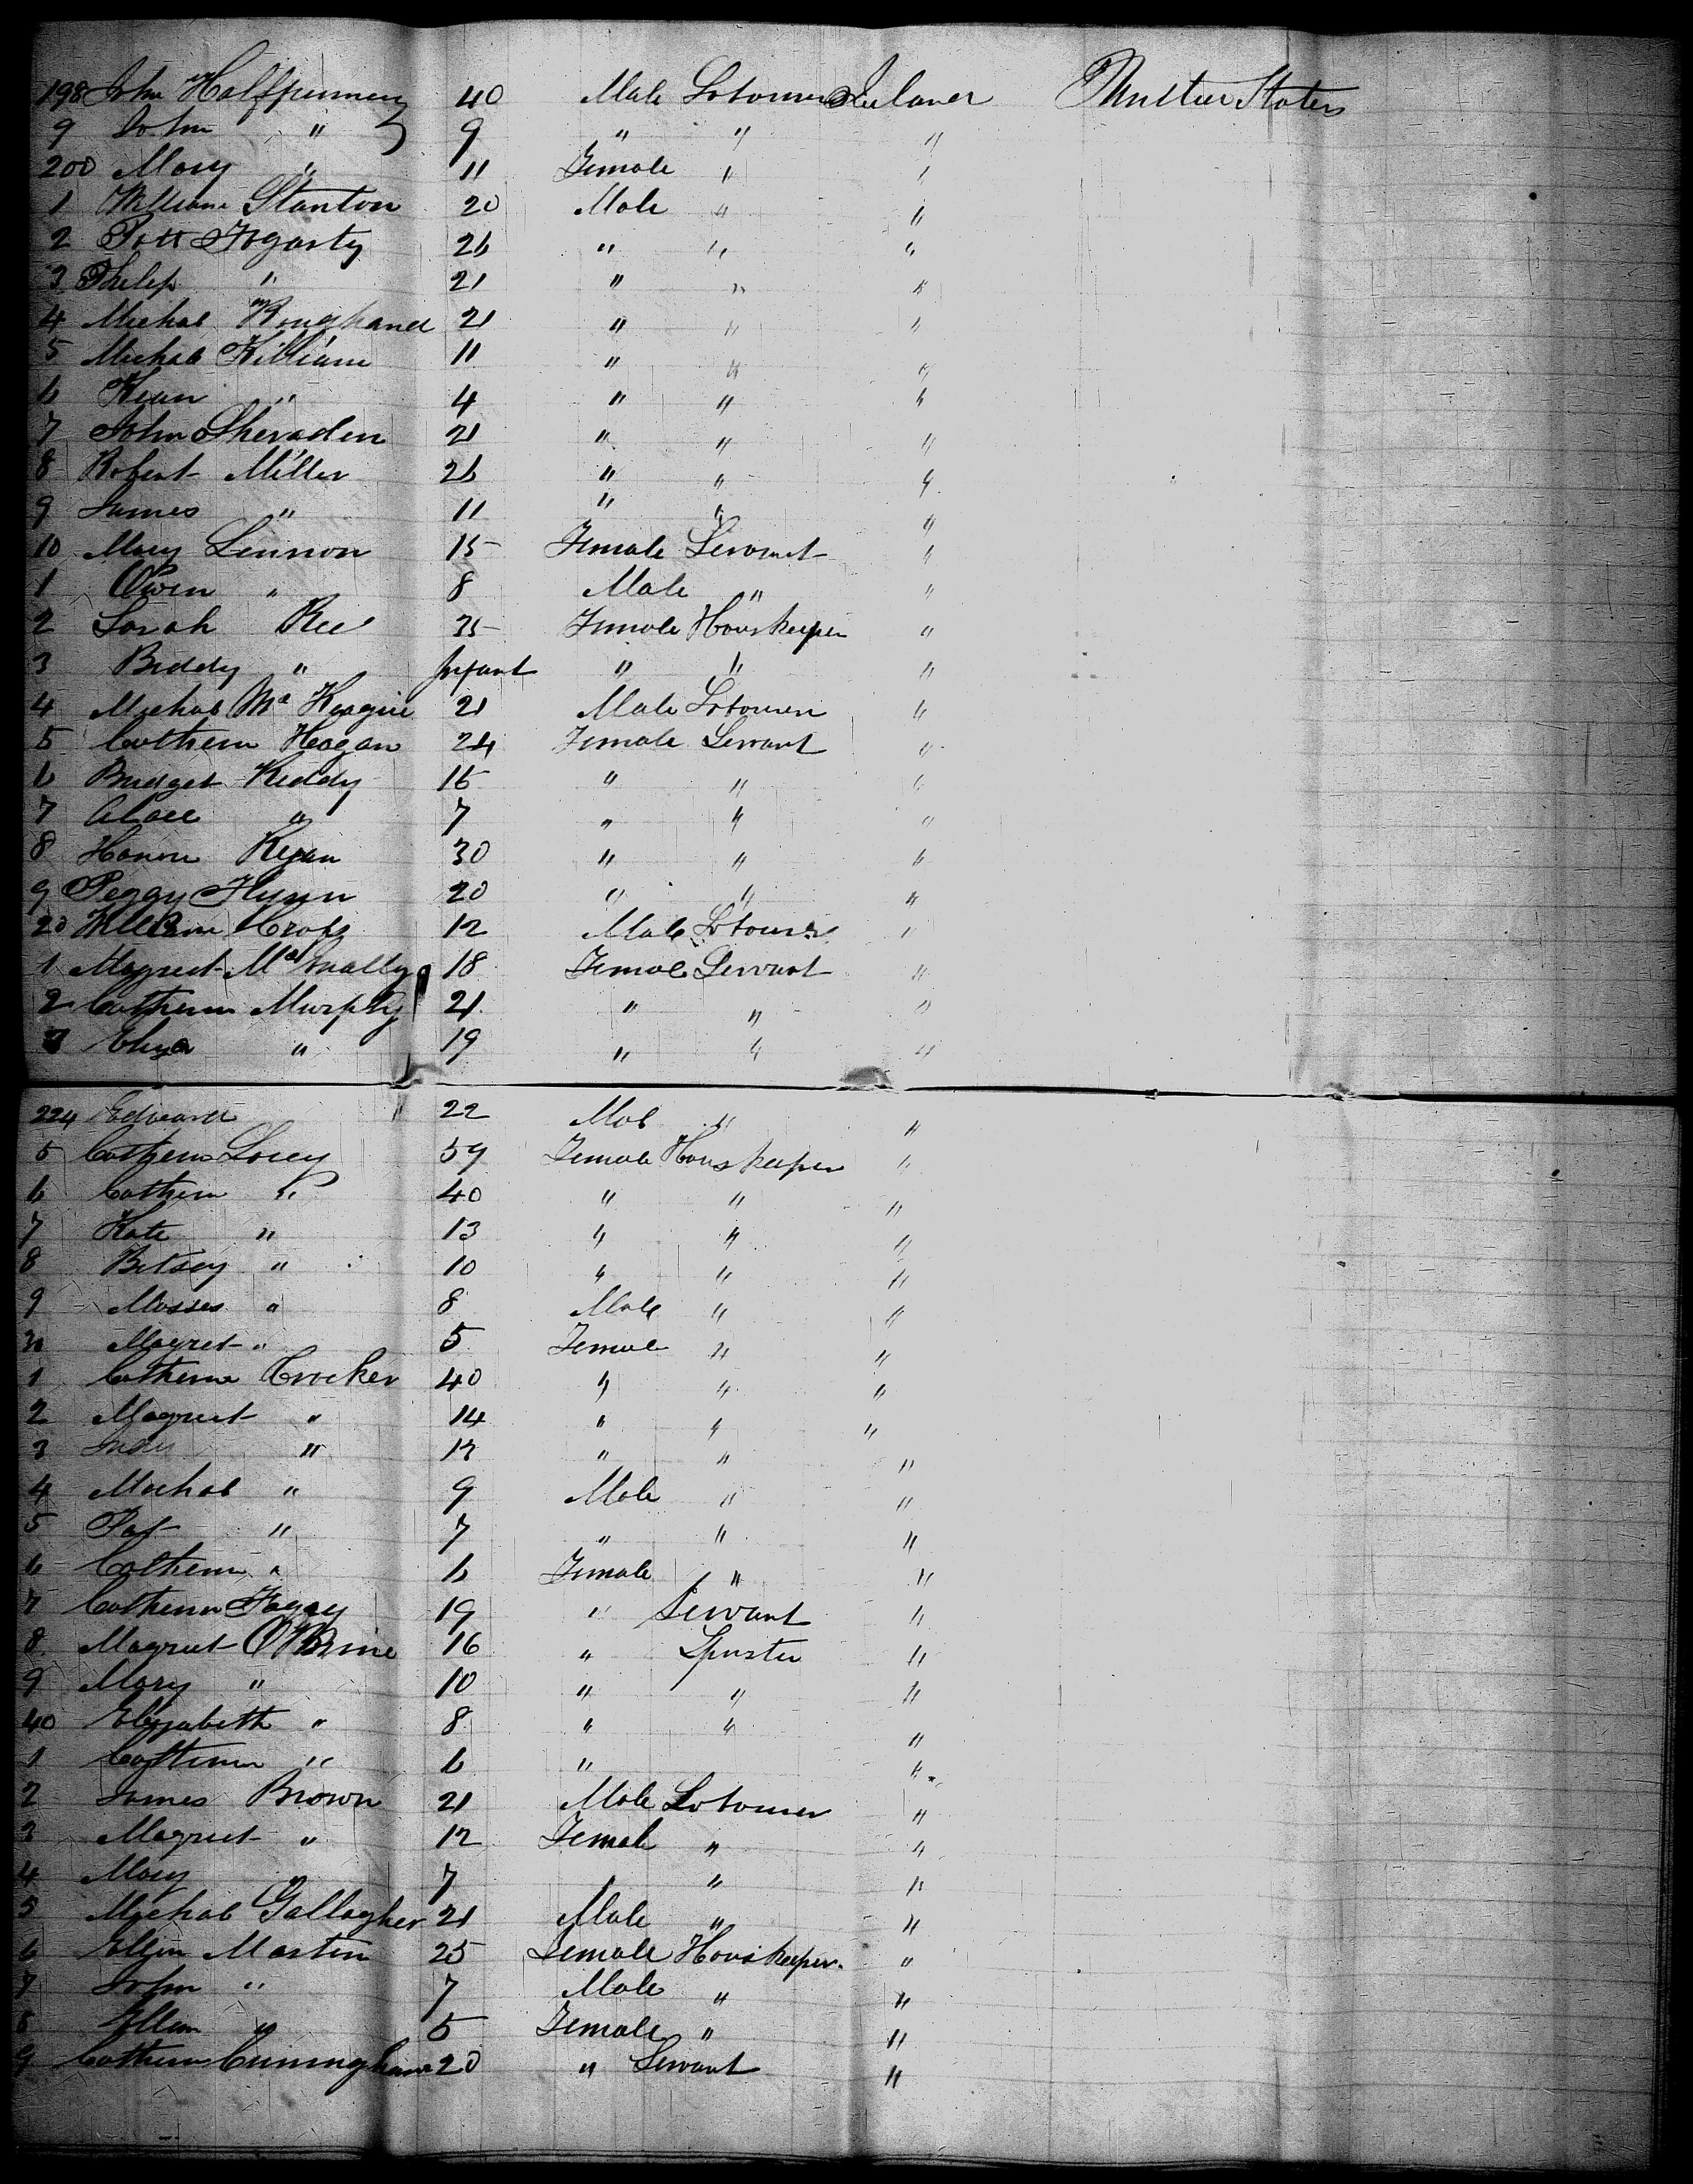 198 John Halfpenney 40 Male Labourer Ireland United States
9 John " 9 " " "
200 Mary " 11 Female " "
1 William Stanton 20 Male " "
2 Patt Fogarty 26 " " "
3 Philip " 21 " " "
4 Michal 21 " " "
5 Michal Killiam 11 " " "
6 Kean " 4 " " "
7 John Sheraden 21 " " "
8 Robert Miller 26 " " "
9 James " 11 " " "
10 Mary Lennon 15 Female Servant "
1 Owen " 8 Male " "
2 Sarah Ree 35 Female Houskeeper "
3 Biddy " Infant " " "
4 Michal 21 Male Labourer "
5 Cathern Hagan 24 Female Servant "
6 Bridget Reddy 16 " " "
7 " 7 " " "
8 Honora Ryan 30 " " "
9 Peggy Flynn 20 " " "
20 William 12 Male Labourer "
1 Magret McNally 18 Female Servant "
2 Cathern Murphy 21 " " "
3 Eliza " 19 " " "
224 Edward " 22 Male " "
5 Cathern Lorey 59 Female Houskeeper "
6 Cathern " 40 " " "
7 Kate " 13 " " "
8 Betsey " 10 " " "
9 Mosses " 8 Male " "
30 Magret " 5 Female " "
1 Catherine Crocker 40 " " "
2 Magret " 14 " " "
3 " 12 " " "
4 Michal " 9 Male " "
5 Pat " 7 " " "
6 Cathern " 6 Female " "
7 Cathern 19 " Servant "
8 Magret O'Brine 16 " Spinster "
9 Mary " 10 " " "
40 Elizabeth " 8 " " "
1 Cathern " 6 " "
2 James Brown 21 Male Labourer "
3 Magret " 12 Female " "
4 Mary " 7 " " "
5 Michal Gallagher 21 Male " "
6 Ellen Martin 25 Female Houskeeper "
7 John " 7 Male " "
8 Ellen " 5 Female " "
9 Cathern Cuningham 20 " Servant "